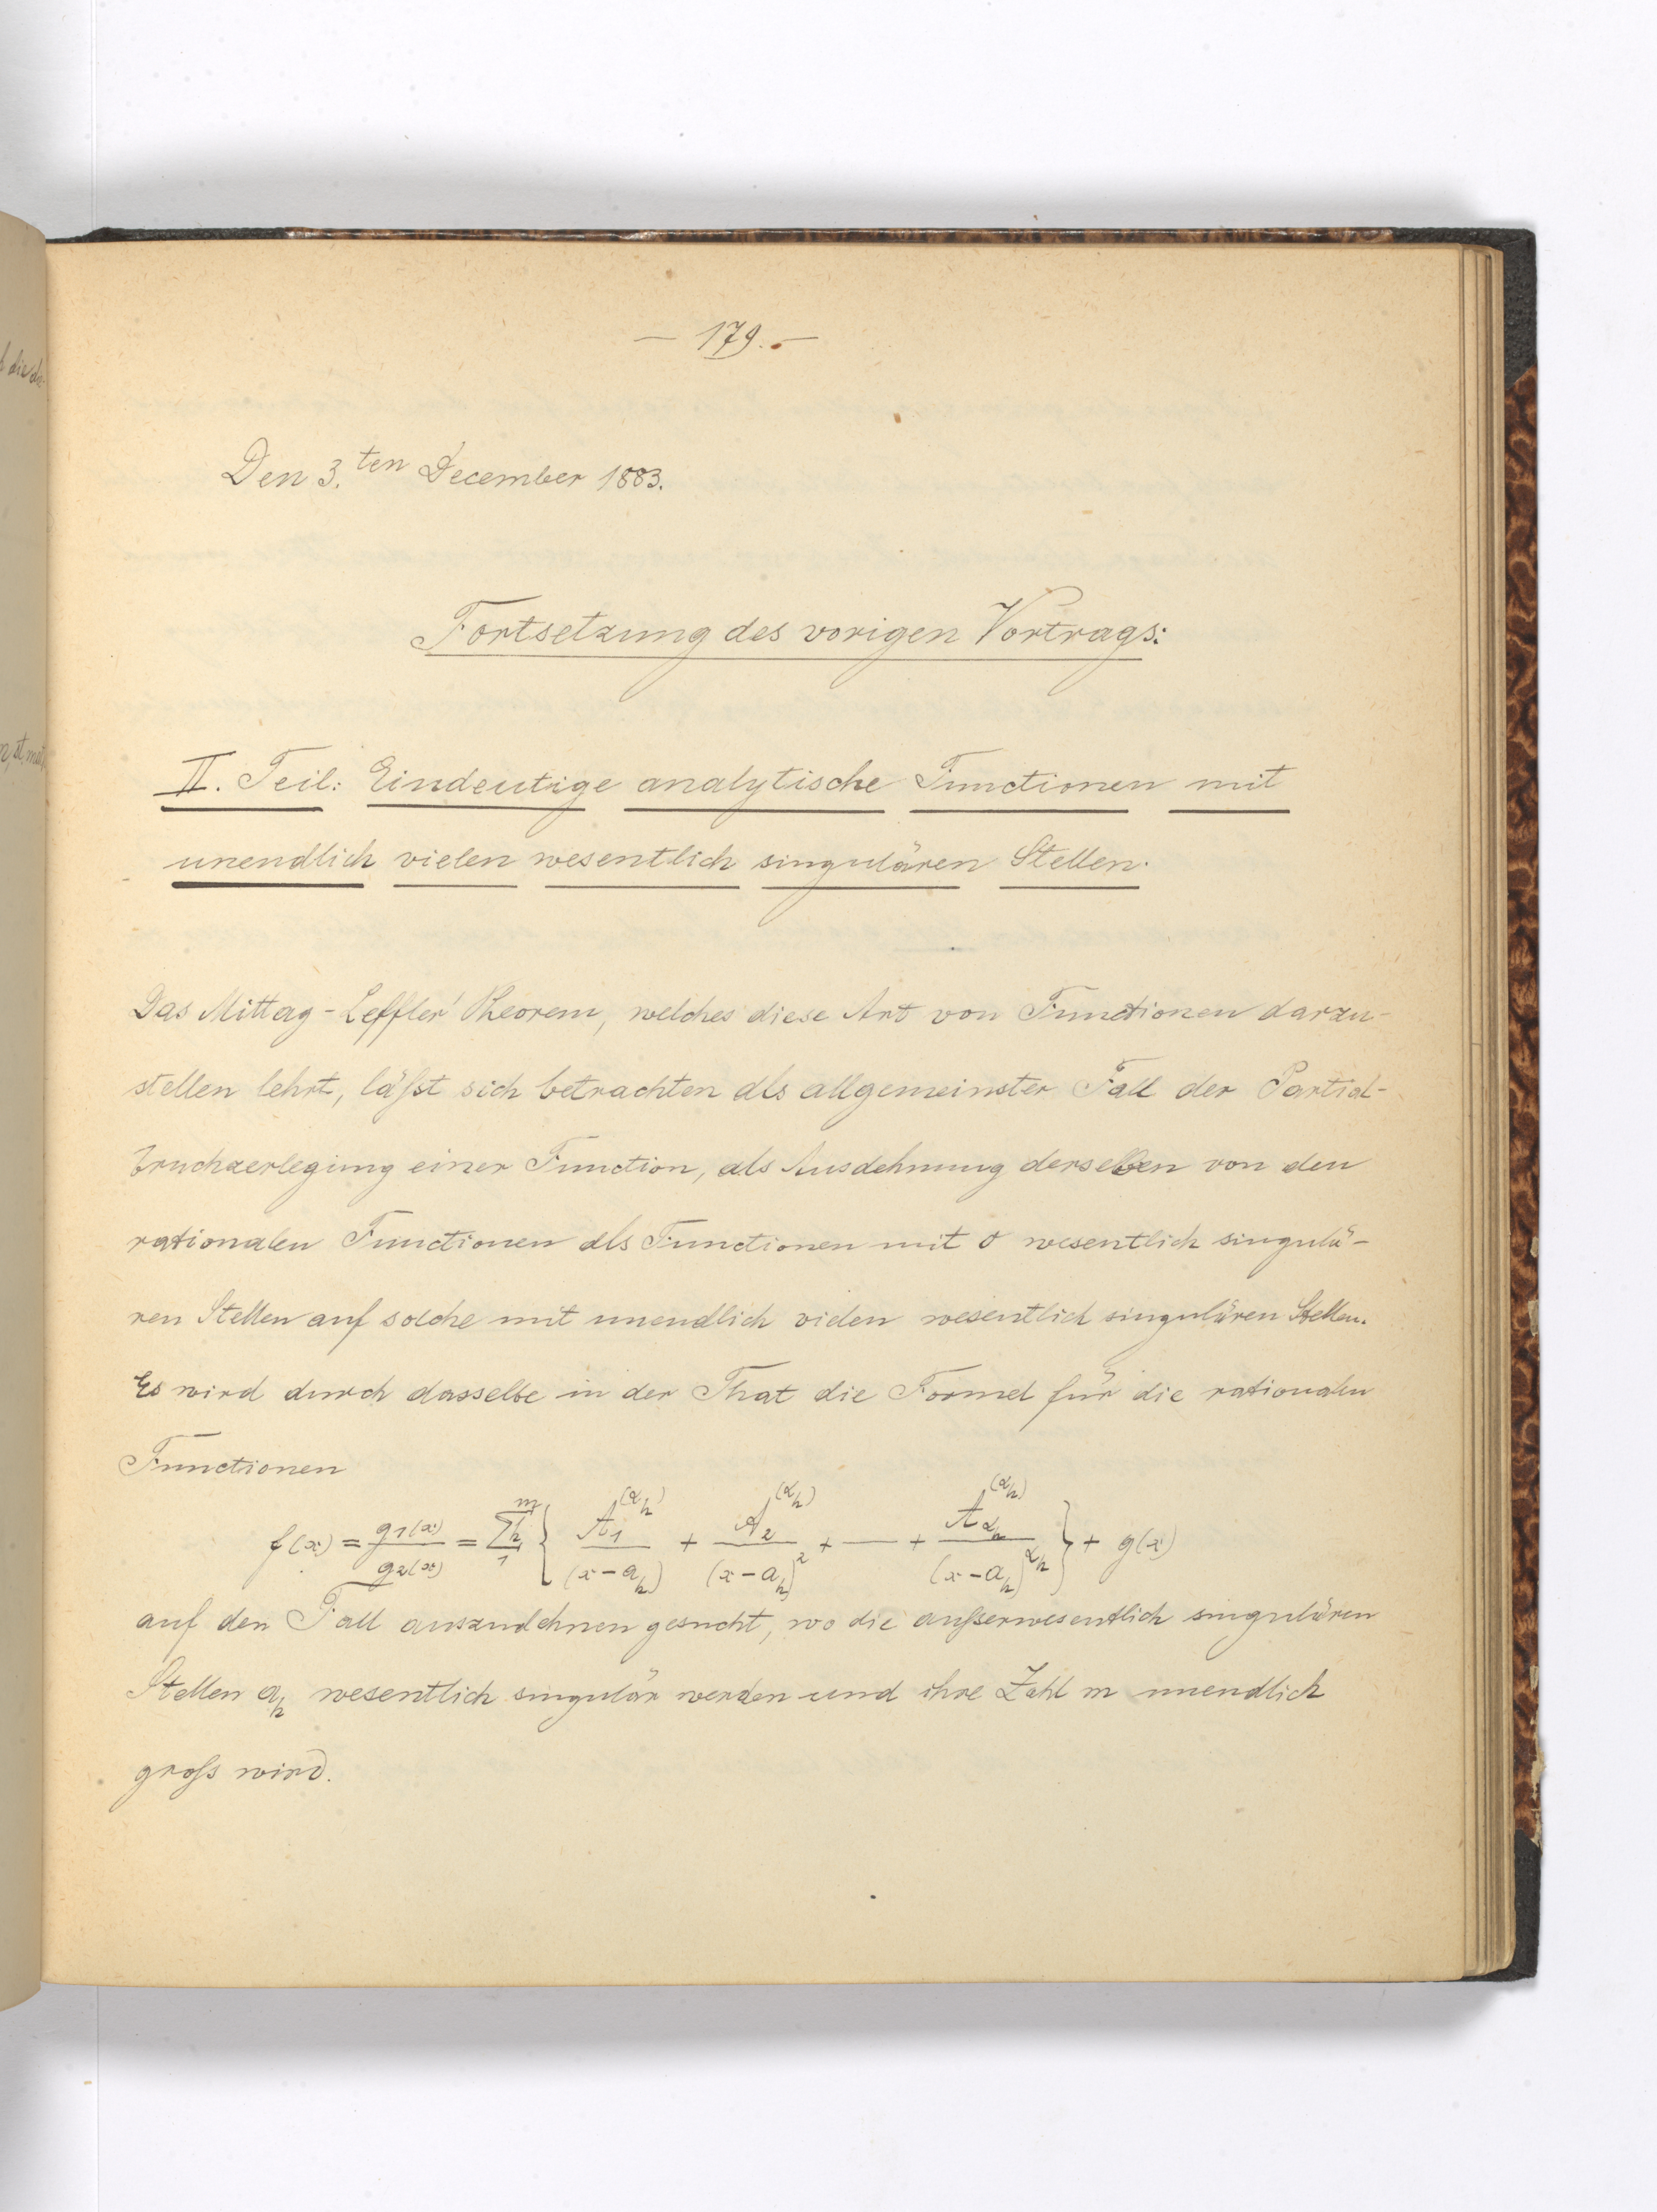 — 179. —
Den 3.ten December 1883.
Fortsetzung des vorigen Vortrags:
II. Teil: Eindeutige analytische Functionen mit
unendlich vielen wesentlich singulären Stellen.
Das Mittag-Leffler' Theorem, welches diese Art von Functionen darzu-
stellen lehrt, läßt sich betrachten als allgemeinster Fall der Partial-
bruchzerlegung einer Function, als Ausdehnung derselben von den
rationalen Functionen als Functionen mit 0 wesentlich singulä-
ren Stellen auf solche mit unendlich vielen wesentlich singulären Stellen.
Es wird durch dasselbe in der That die Formel für die rationalen
Functionen
f(x) = g₁(x)/g₂(x) = Σₕ₁ᵐ { A₁^(αₕ)/(x−aₕ) + A₂^(αₕ)/(x−aₕ)² + — + A_αₕ^(αₕ)/(x−aₕ)^αₕ } + g(x)
auf den Fall auszudehnen gesucht, wo die außerwesentlich singulären
Stellen aₕ wesentlich singulär werden und ihre Zahl m unendlich
groß wird.